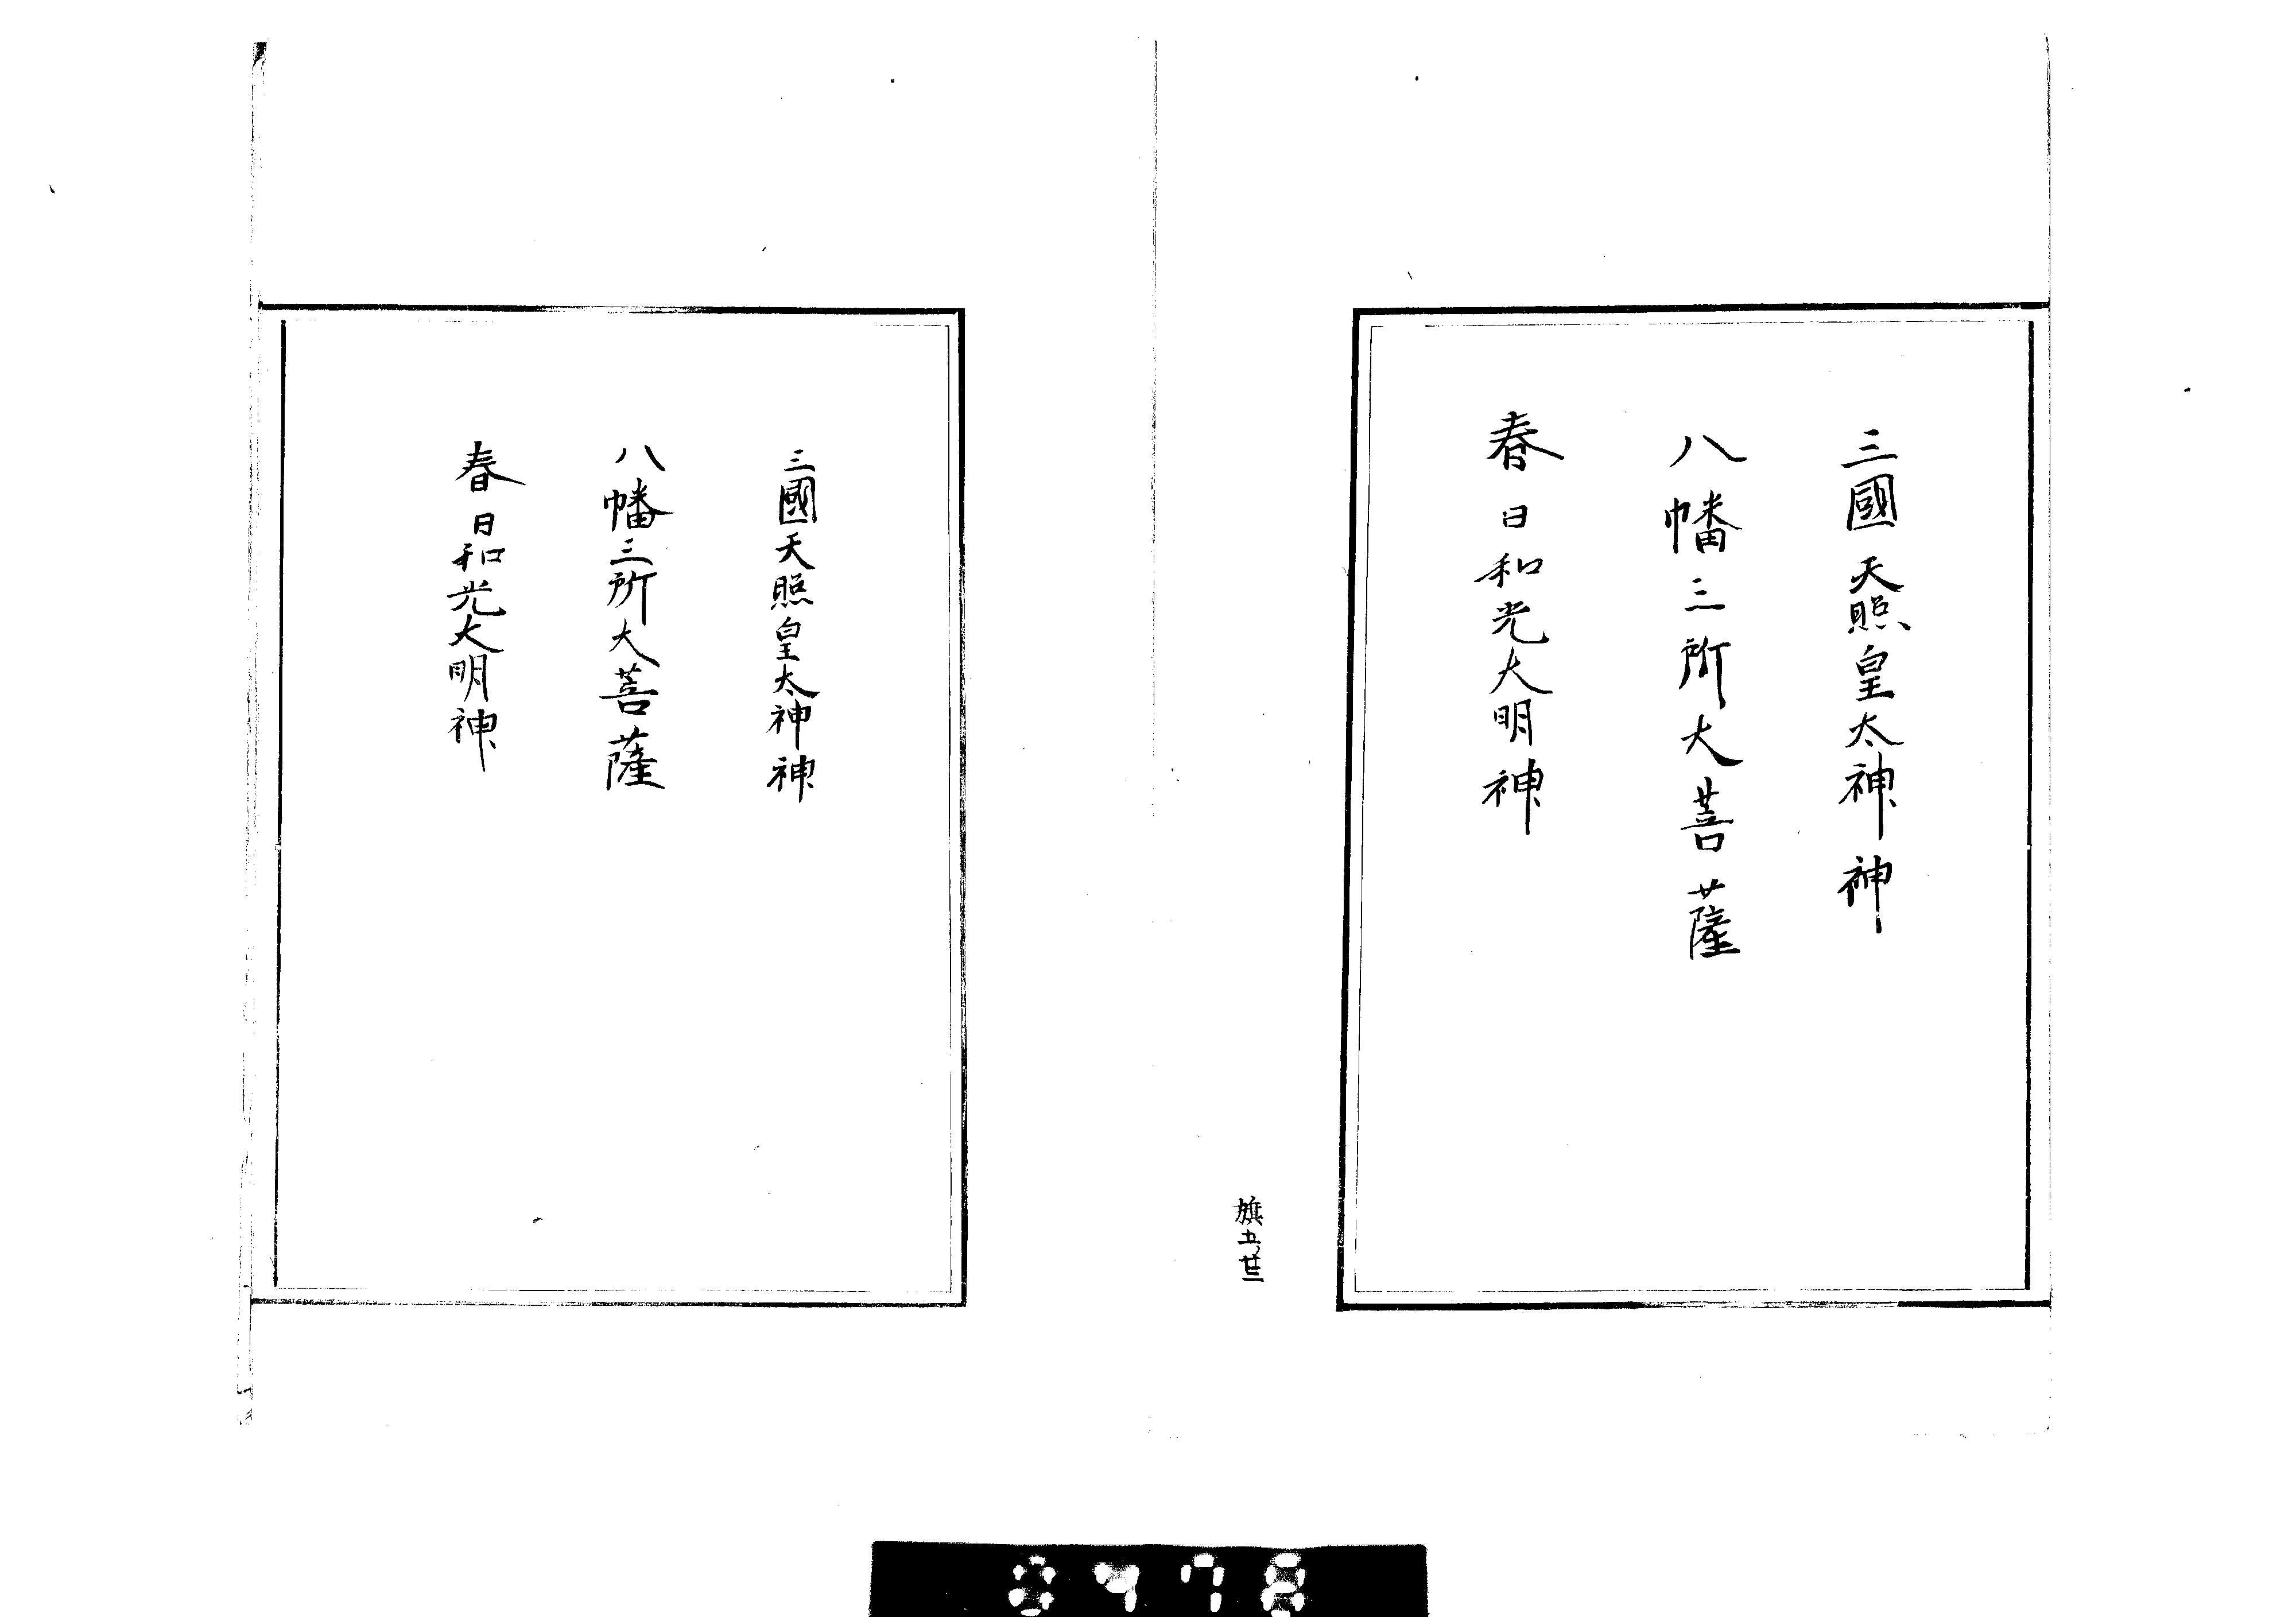 三國天照皇太神神
八幡三所大菩薩
春日和光大明神
旗五ノ廿三
三國天照皇太神神
八幡三所大菩薩
春日和光大明神